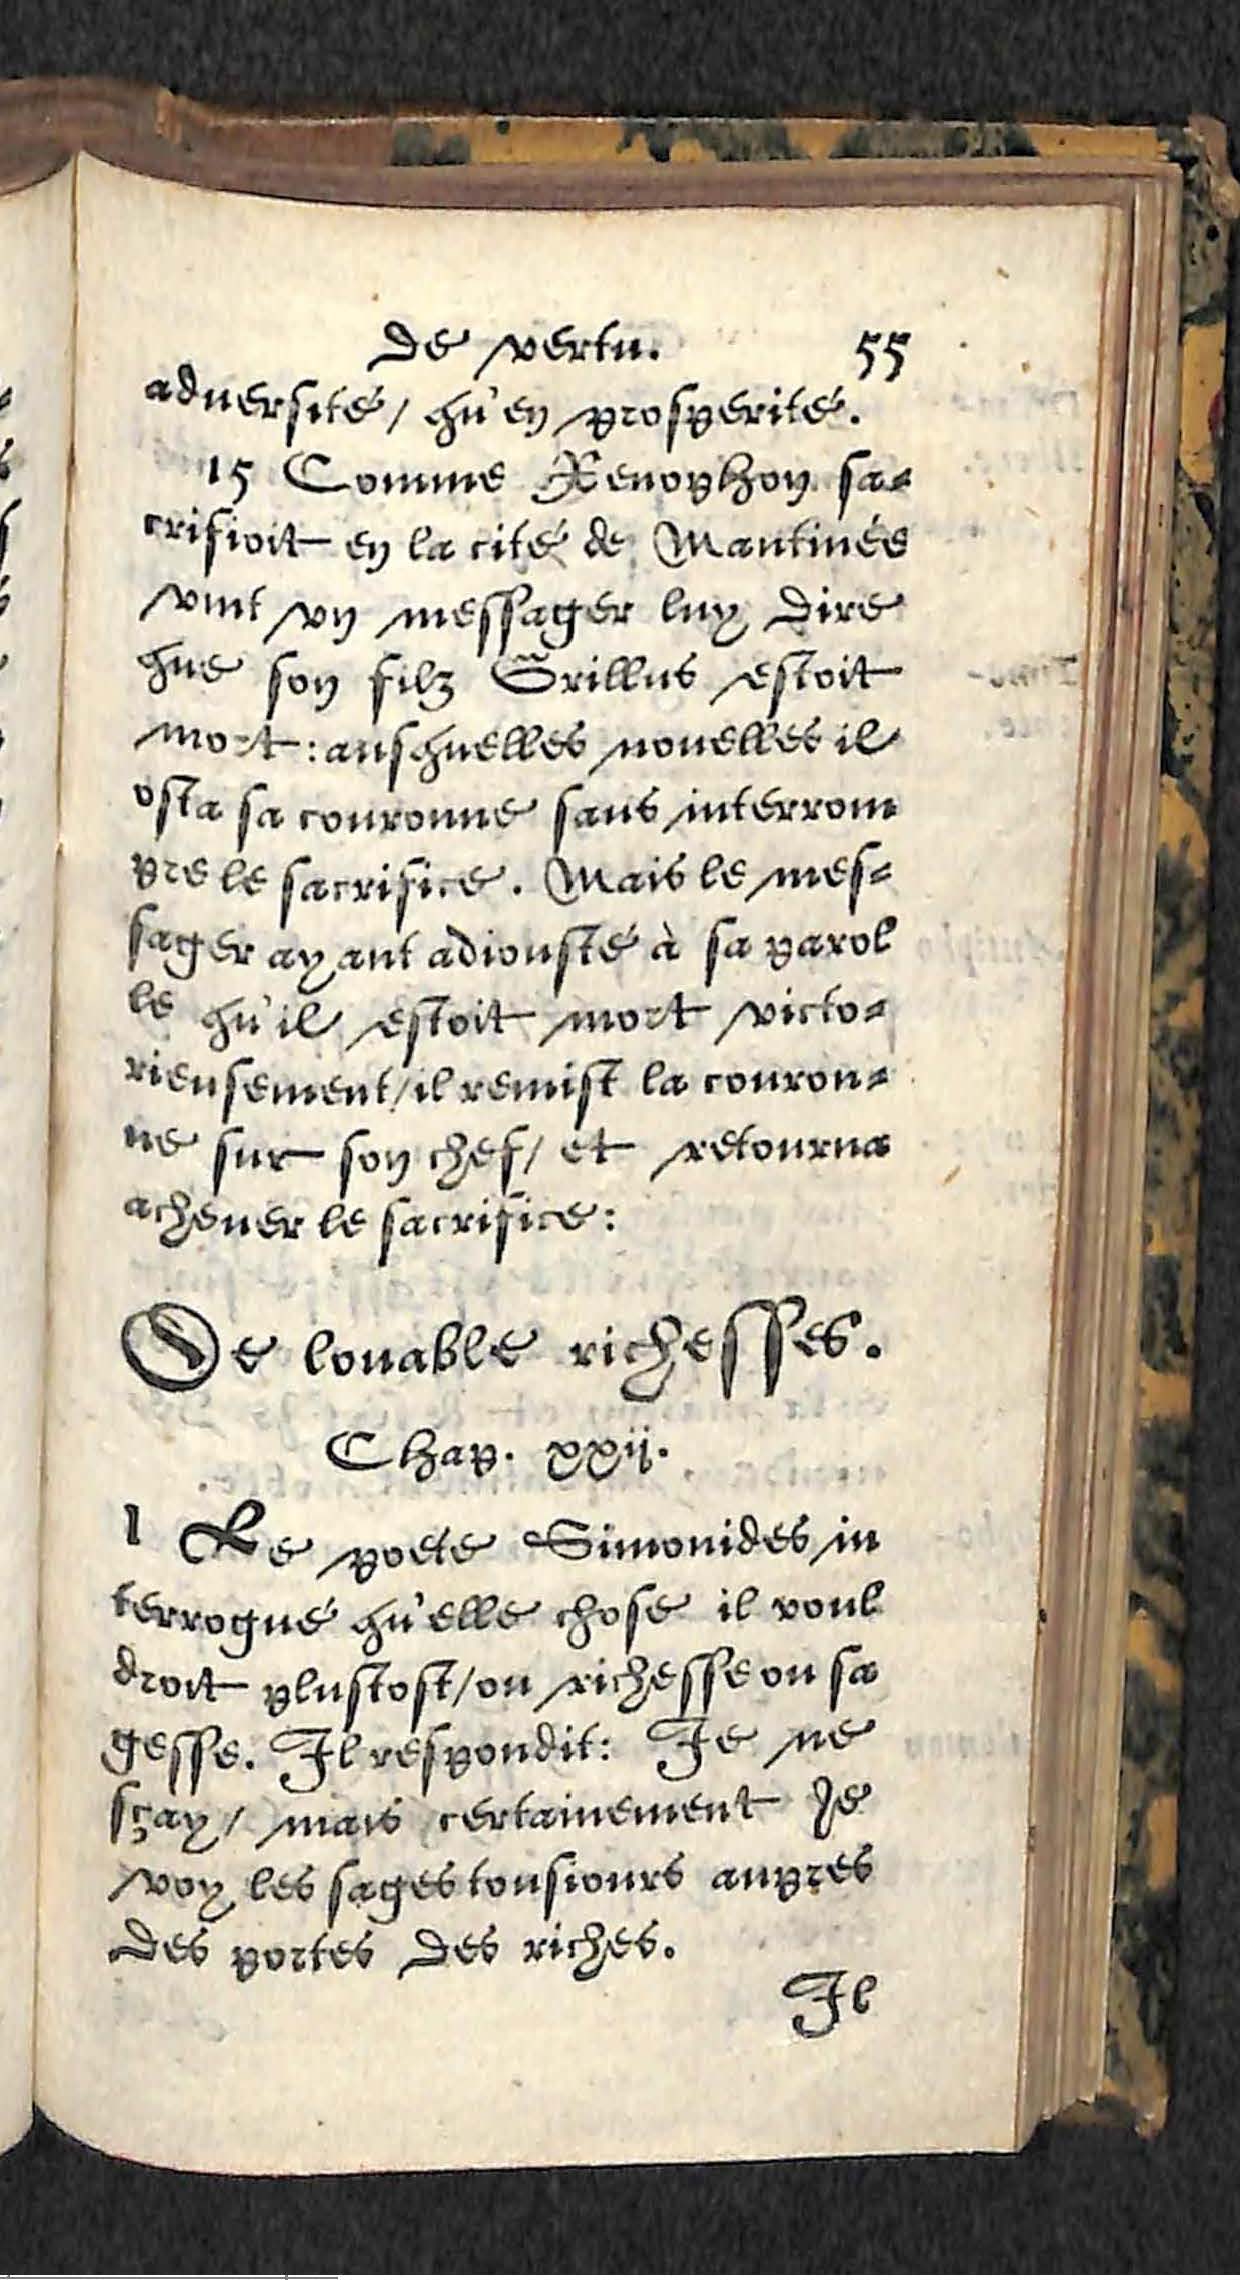 de vertu. 55
aduersité/ qu'en prosperité.
15 Comme Xenophon sa-
crifioit en la cité de Mantinée
vint vn messager luy dire
que son filz Grillus estoit
mort: ausquelles nouelles il
osta sa couronne sans interrom
pre le sacrifice. Mais le mes-
sager ayant adiousté à sa parol
le qu'il estoit mort victo-
rieusement/ il remist la couron-
ne sur son chef/ et retourna
acheuer le sacrifice:
De louable richesses.
Chap. xxij.
1 Le poete Simonides in
terrogué qu'elle chose il voul
droit plustost/ ou richesse ou sa
gesse. Il respondit: Je ne
sçay/ mais certainement Je
voy les sages tousiours aupres
des portes des riches.
Il